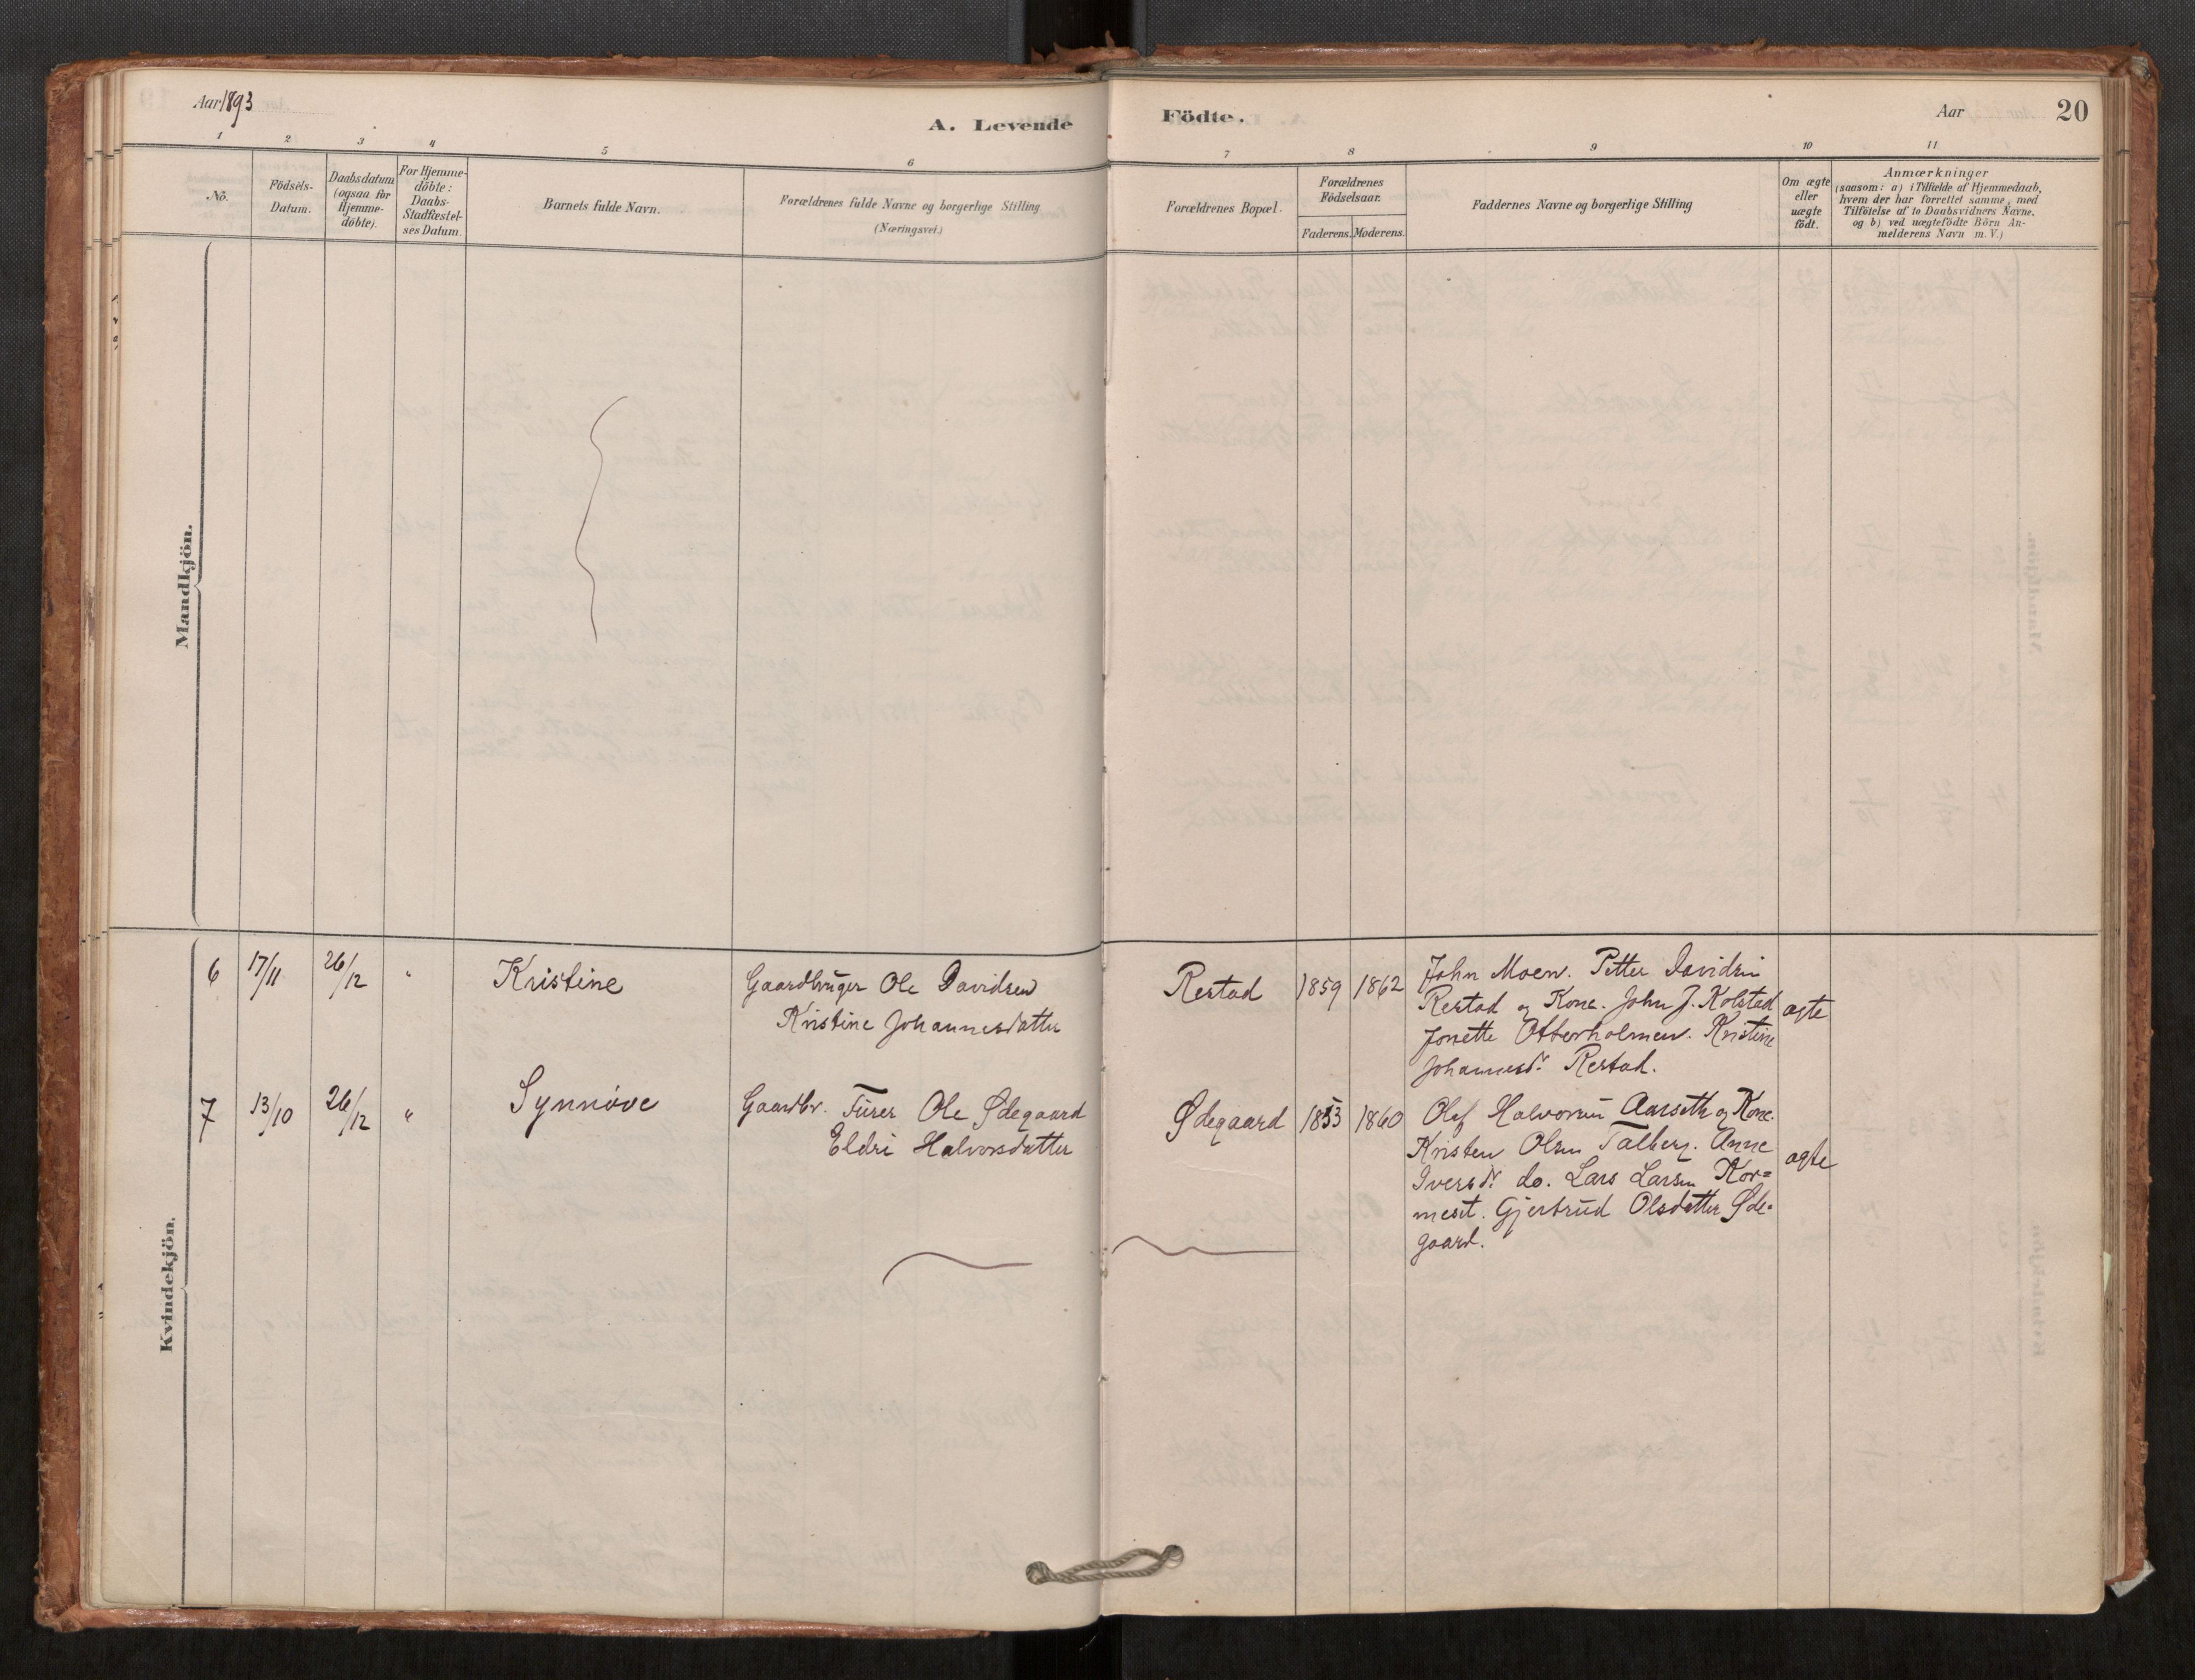 Aar 1893
A. Levende Födte.
Aar
20
1 2 3 4 5 6 7 8 9 10 11
No.
Födsels-
Datum.
Daabsdatum
(ogsaa for
Hjemme-
döbte).
For Hjemme-
döbte:
Daabs-
Stadfæstel-
ses Datum.
Barnets fulde Navn.
Forældrenes fulde Navne og borgerlige Stilling
(Næringsvei.)
Forældrenes Bopæl.
Forældrenes
Födselsaar.
Faderens. Moderens.
Faddernes Navne og borgerlige Stilling
Om ægte
eller
uægte
födt.
Anmærkninger
(saasom: a) i Tilfælde af Hjemmedaab,
hvem der har forrettet samme, med
Tilföielse af to Daabsvidners Navne,
og b) ved uægtefödte Börn An-
melderens Navn m. V.)
Mandkjön.
Kvindekjön.
6 17/11 26/12 " Kristine
Gaardbruger Ole Davidsen
Kristine Johannesdatter
Restad 1859 1862
John Moen. Petter Davidsen
Restad og Kone. John J. Kolstad
Jonette Otterholmen. Kristine
Johannesdr. Restad.
ægte
7 13/10 26/12 " Synnöve
Gaardbr. Furer Ole Ødegaard
Eldri Halvorsdatter
Ødegaard 1853 1860
Olaf Halvorsen Aarseth og Kone.
Kristen Olsen Talberg. Anne
Iversdr. do. Lars Larsen Kor=
meset. Gjertrud Olsdatter Øde-
gaard.
ægte